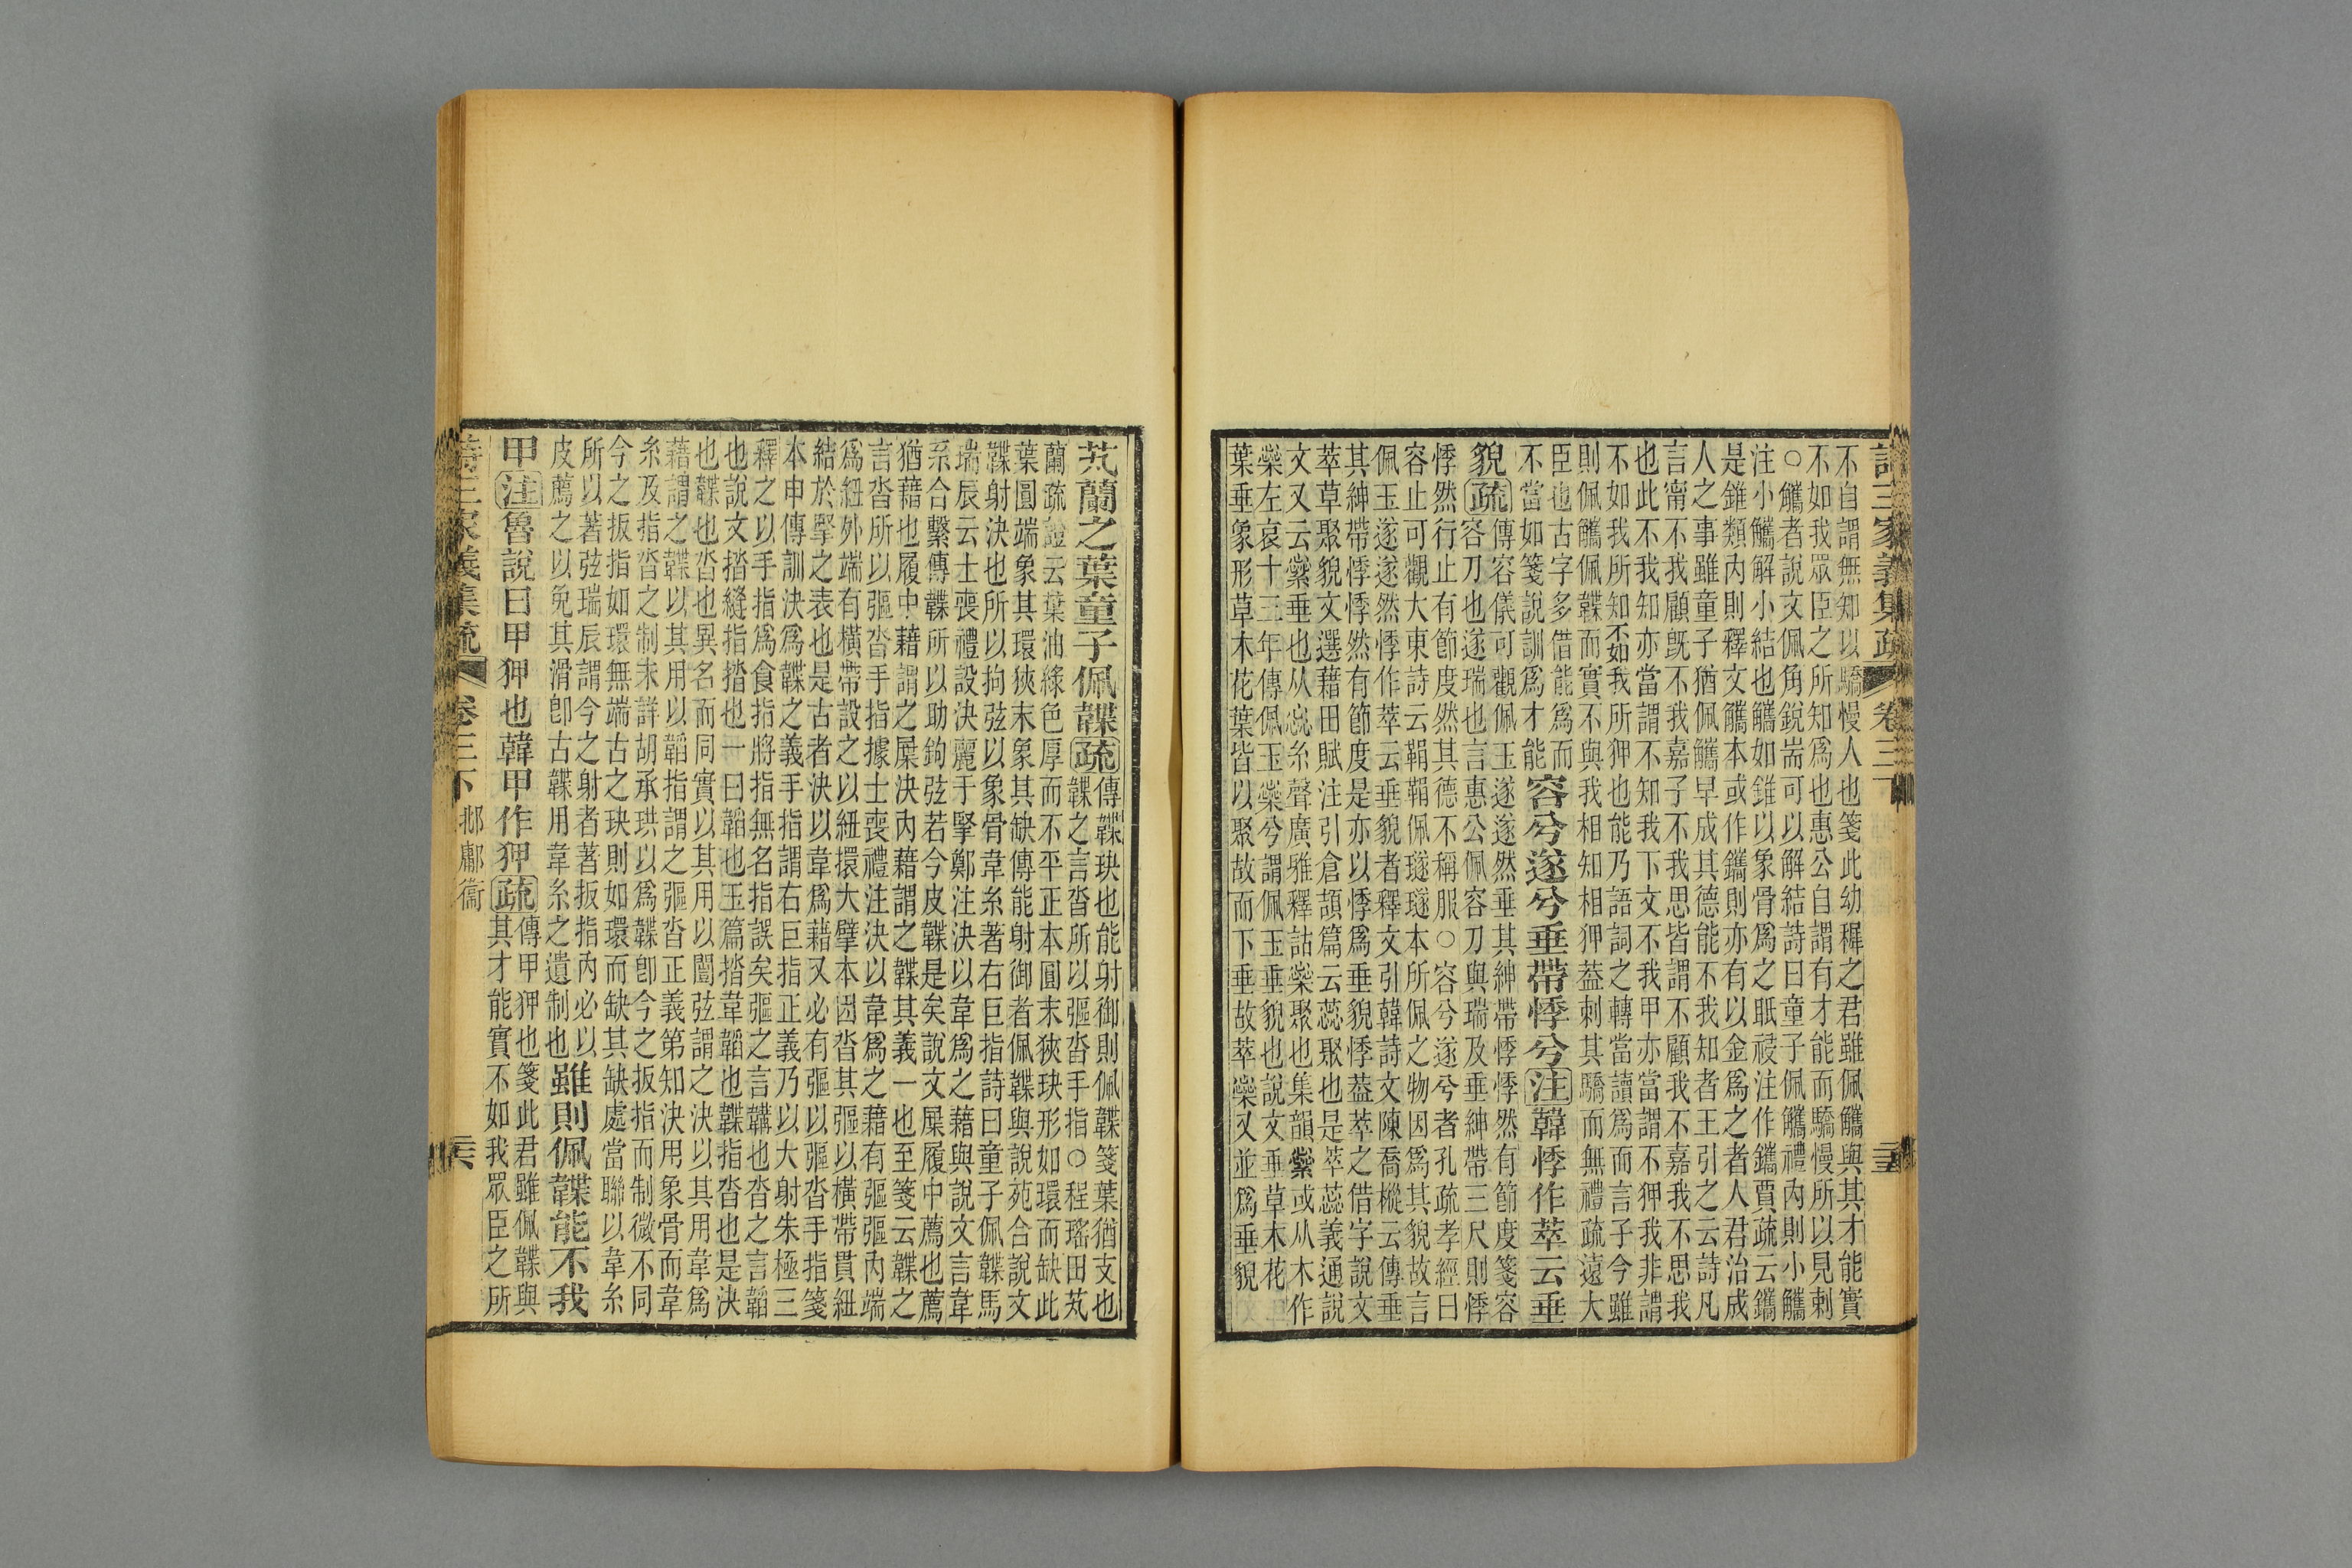 詩三家義集疏 卷三下 二五
不自謂無知以驕慢人也箋此幼稺之君雖佩觿與其才能實
不如我眾臣之所知爲也惠公自謂有才能而驕慢所以見刺
○觿者說文佩角銳耑可以解結詩曰童子佩觿禮內則小觿
注小觿解小結也觿如錐以象骨爲之眂祲注作鑴賈疏云鑴
是錐類內則釋文觿本或作鑴則亦有以金爲之者人君治成
人之事雖童子猶佩觿早成其德能不我知者王引之云詩凡
言甯不我顧旣不我嘉子不我思皆謂不顧我不嘉我不思我
也此不我知亦當謂不知我下文不我甲亦當謂不狎我非謂
不如我所知不如我所狎也能乃語詞之轉當讀爲而言子今雖
則佩觿佩韘而實不與我相知相狎葢刺其驕而無禮疏遠大
臣也古字多借能爲而
不當如箋說訓爲才能容兮遂兮垂帶悸兮注韓悸作萃云垂
貌疏傳容儀可觀佩玉遂遂然垂其紳帶悸悸然有節度箋容
容刀也遂瑞也言惠公佩容刀與瑞及垂紳帶三尺則悸
悸然行止有節度然其德不稱服○容兮遂兮者孔疏孝經曰
容止可觀大東詩云鞙鞙佩璲璲本所佩之物因爲其貌故言
佩玉遂遂然悸作萃云垂貌者釋文引韓詩文陳喬樅云傳垂
其紳帶悸悸然有節度是亦以悸爲垂貌悸葢萃之借字說文
萃草聚貌文選藉田賦注引倉頡篇云蕊聚也是萃蕊義通說
文又云縈垂也从惢糸聲廣雅釋詁橤聚也集韻縈或从木作
橤左哀十三年傳佩玉橤兮謂佩玉垂貌也說文垂草木花
葉垂象形草木花葉皆以聚故而下垂故萃橤又並爲垂貌
芄蘭之葉童子佩韘疏傳韘玦也能射御則佩韘箋葉猶支也
韘之言沓所以彄沓手指○程瑤田芄
蘭疏證云葉油綠色厚而不平正本圓末狹玦形如環而缺此
葉圓端象其環狹末象其缺傳能射御者佩韘與說苑合說文
韘射決也所以拘弦以象骨韋糸著右巨指詩曰童子佩韘馬
瑞辰云士喪禮設決麗于掔鄭注決以韋爲之藉與說文言韋
系合繫傳韘所以助鉤弦若今皮韘是矣說文屟履中薦也薦
猶藉也履中藉謂之屟決內藉謂之韘其義一也至箋云韘之
言沓所以彄沓手指據士喪禮注決以韋爲之藉有彄彄內端
爲紐外端有橫帶設之以紐擐大擘本因沓其彄以橫帶貫紐
結於掔之表也是古者決以韋爲藉又必有彄以彄沓手指箋
本申傳訓決爲韘之義手指謂右巨指正義乃以大射朱極三
釋之以手指爲食指將指無名指誤矣彄之言韝也沓之言韜
也說文揩縫指揩也一曰韜也玉篇揩韋韜也韘指沓也是決
也韘也沓也異名而同實以其用以闓弦謂之決以其用韋爲
藉謂之韘以其用以韜指謂之彄沓正義第知決用象骨而韋
糸及指沓之制未詳胡承珙以爲韘卽今之扳指而制微不同
今之扳指如環無端古之玦則如環而缺其缺處當聯以韋糸
所以著弦瑞辰謂今之射者著扳指內必以
皮薦之以免其滑卽古韘用韋糸之遺制也雖則佩韘能不我
甲注魯說曰甲狎也韓甲作狎疏傳甲狎也箋此君雖佩韘與
其才能實不如我眾臣之所
詩三家義集疏 卷三下 邶鄘衞 二六